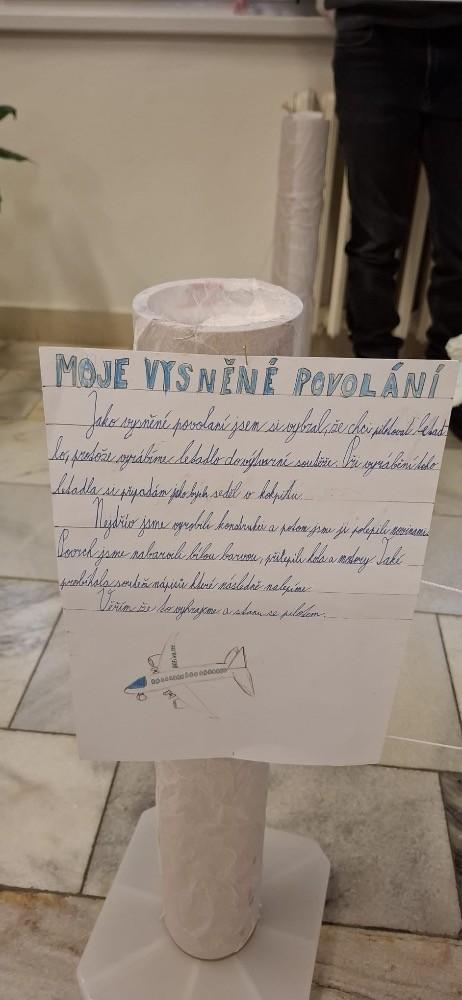 MOJE VYSNĚNÉ POVOLÁNÍ
Jako vysněné povolaní jsem si vybral, že chci pilotovat letad
lo, protože vyrábíme letadlo do výtvarné soutěže. Při vyrábění toho
letadla si připadám jako bych seděl v kokpitu.
Nejdřív jsme vyrobili kondrukci a potom jsme ji polepili novinami.
Povrch jsme nabarvili bílou barvou, přilepili kola a motory. Také
probíhala soutěž nápisů které následně nalepíme.
Věřím že to vyhrajeme a stanu se pilotem.